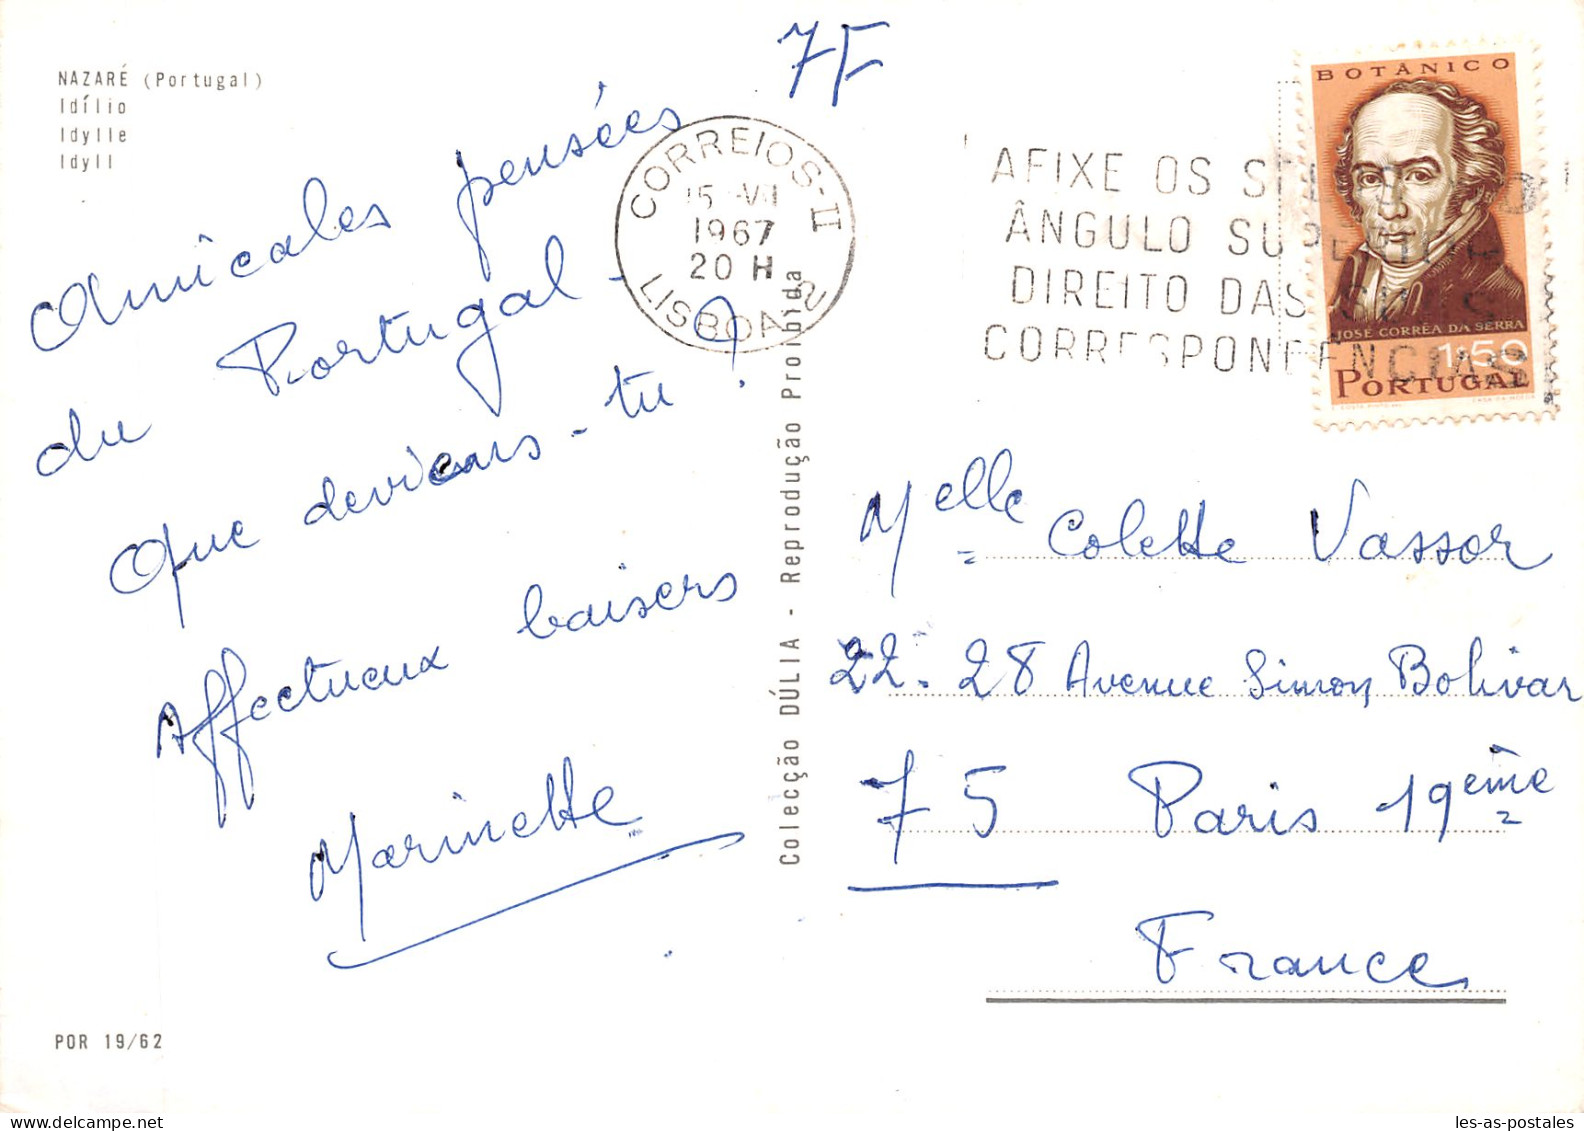 NAZARÉ (Portugal)
Idílio
Idylle
Idyll
7F
Amicales pensées
du Portugal -
Que deviens-tu ?
Affectueux baisers
Marinette
POR 19/62
Colecção DÚLIA - Reprodução Proibida
CORREIOS-II
1967
20 H
LISBOA 2
AFIXE OS
ÂNGULO SUPERIOR
DIREITO DAS
CORRESPONDÊNCIAS
BOTÂNICO
JOSÉ CORRÊA DA SERRA
1$50
PORTUGAL
Melle Colette Vassor
22-28 Avenue Simon Bolivar
75 Paris 19ème
France
les-as-postales